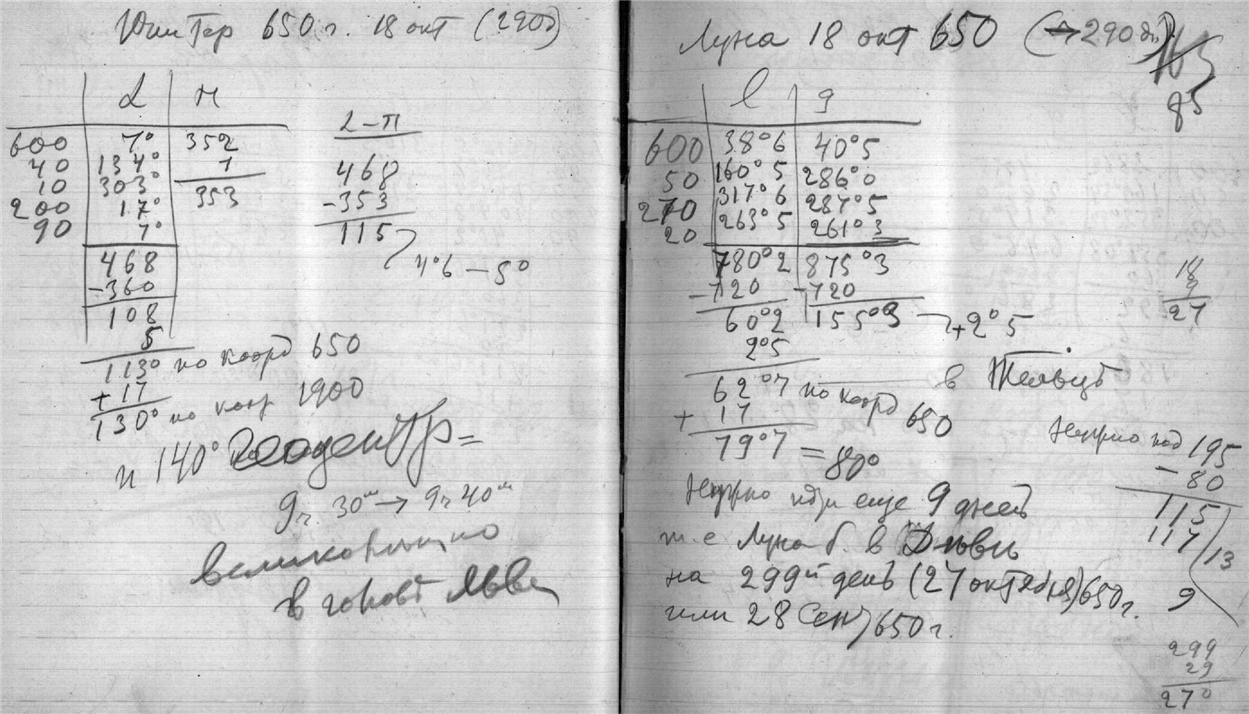 Юпитер 650 г. 18 окт (290д)
L П
600 7° 352
40 134° 1
10 303° 353
200 17°
90 7°
468
-360
108
5
113° по коорд 650
+17
130° по коор 1900
L-П
468
-353
115
4°6 – 5°
и 140° Геоцентр=
9ч. 30м → 9ч 40м
великолепно
в голове Льва
Луна 18 окт 650 (→290 дн)
165
85
l g
600 38°6 40°5
50 160°5 286°0
270 317°6 287°5
20 263°5 261°3
780°2 875°3
-720 -720
60°2 155°3 +2°5
2°5
62°7 по коорд 650
+ 17
79°7 = 80°
в Тельцѣ
18
9
27
Нужно 195
- 80
115
117/13
9
Нужно еще 9 дней
т.е Луна б. в
на 299й день (27 октября) 650 г.
или 28 Сен) 650 г.
299
29
270